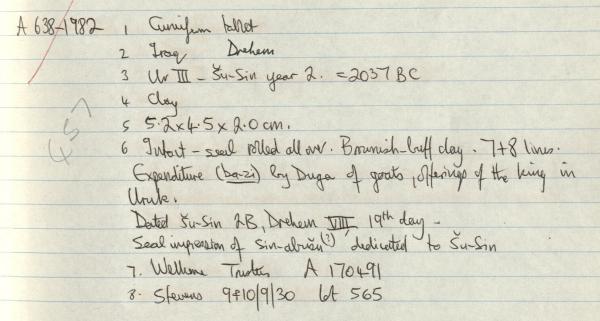 A 638-1982 1 Cuneiform tablet
2 Iraq Drehem
3 Ur III - Šu-Sin year 2. = 2037 BC
4 Clay
5 5.2 x 4.5 x 2.0 cm.
6 Intact - seal rolled all over. Brownish-buff clay. 7+8 lines.
Expenditure (ba-zi) by Duga of goats, offerings of the king in
Uruk.
Dated Šu-Sin 2B, Drehem VIII, 19th day -
Seal impression of Sin-abušu(?) dedicated to Šu-Sin
7. Wellcome Trustees A 170491
8. Stevens 9+10/9/30 lot 565
457